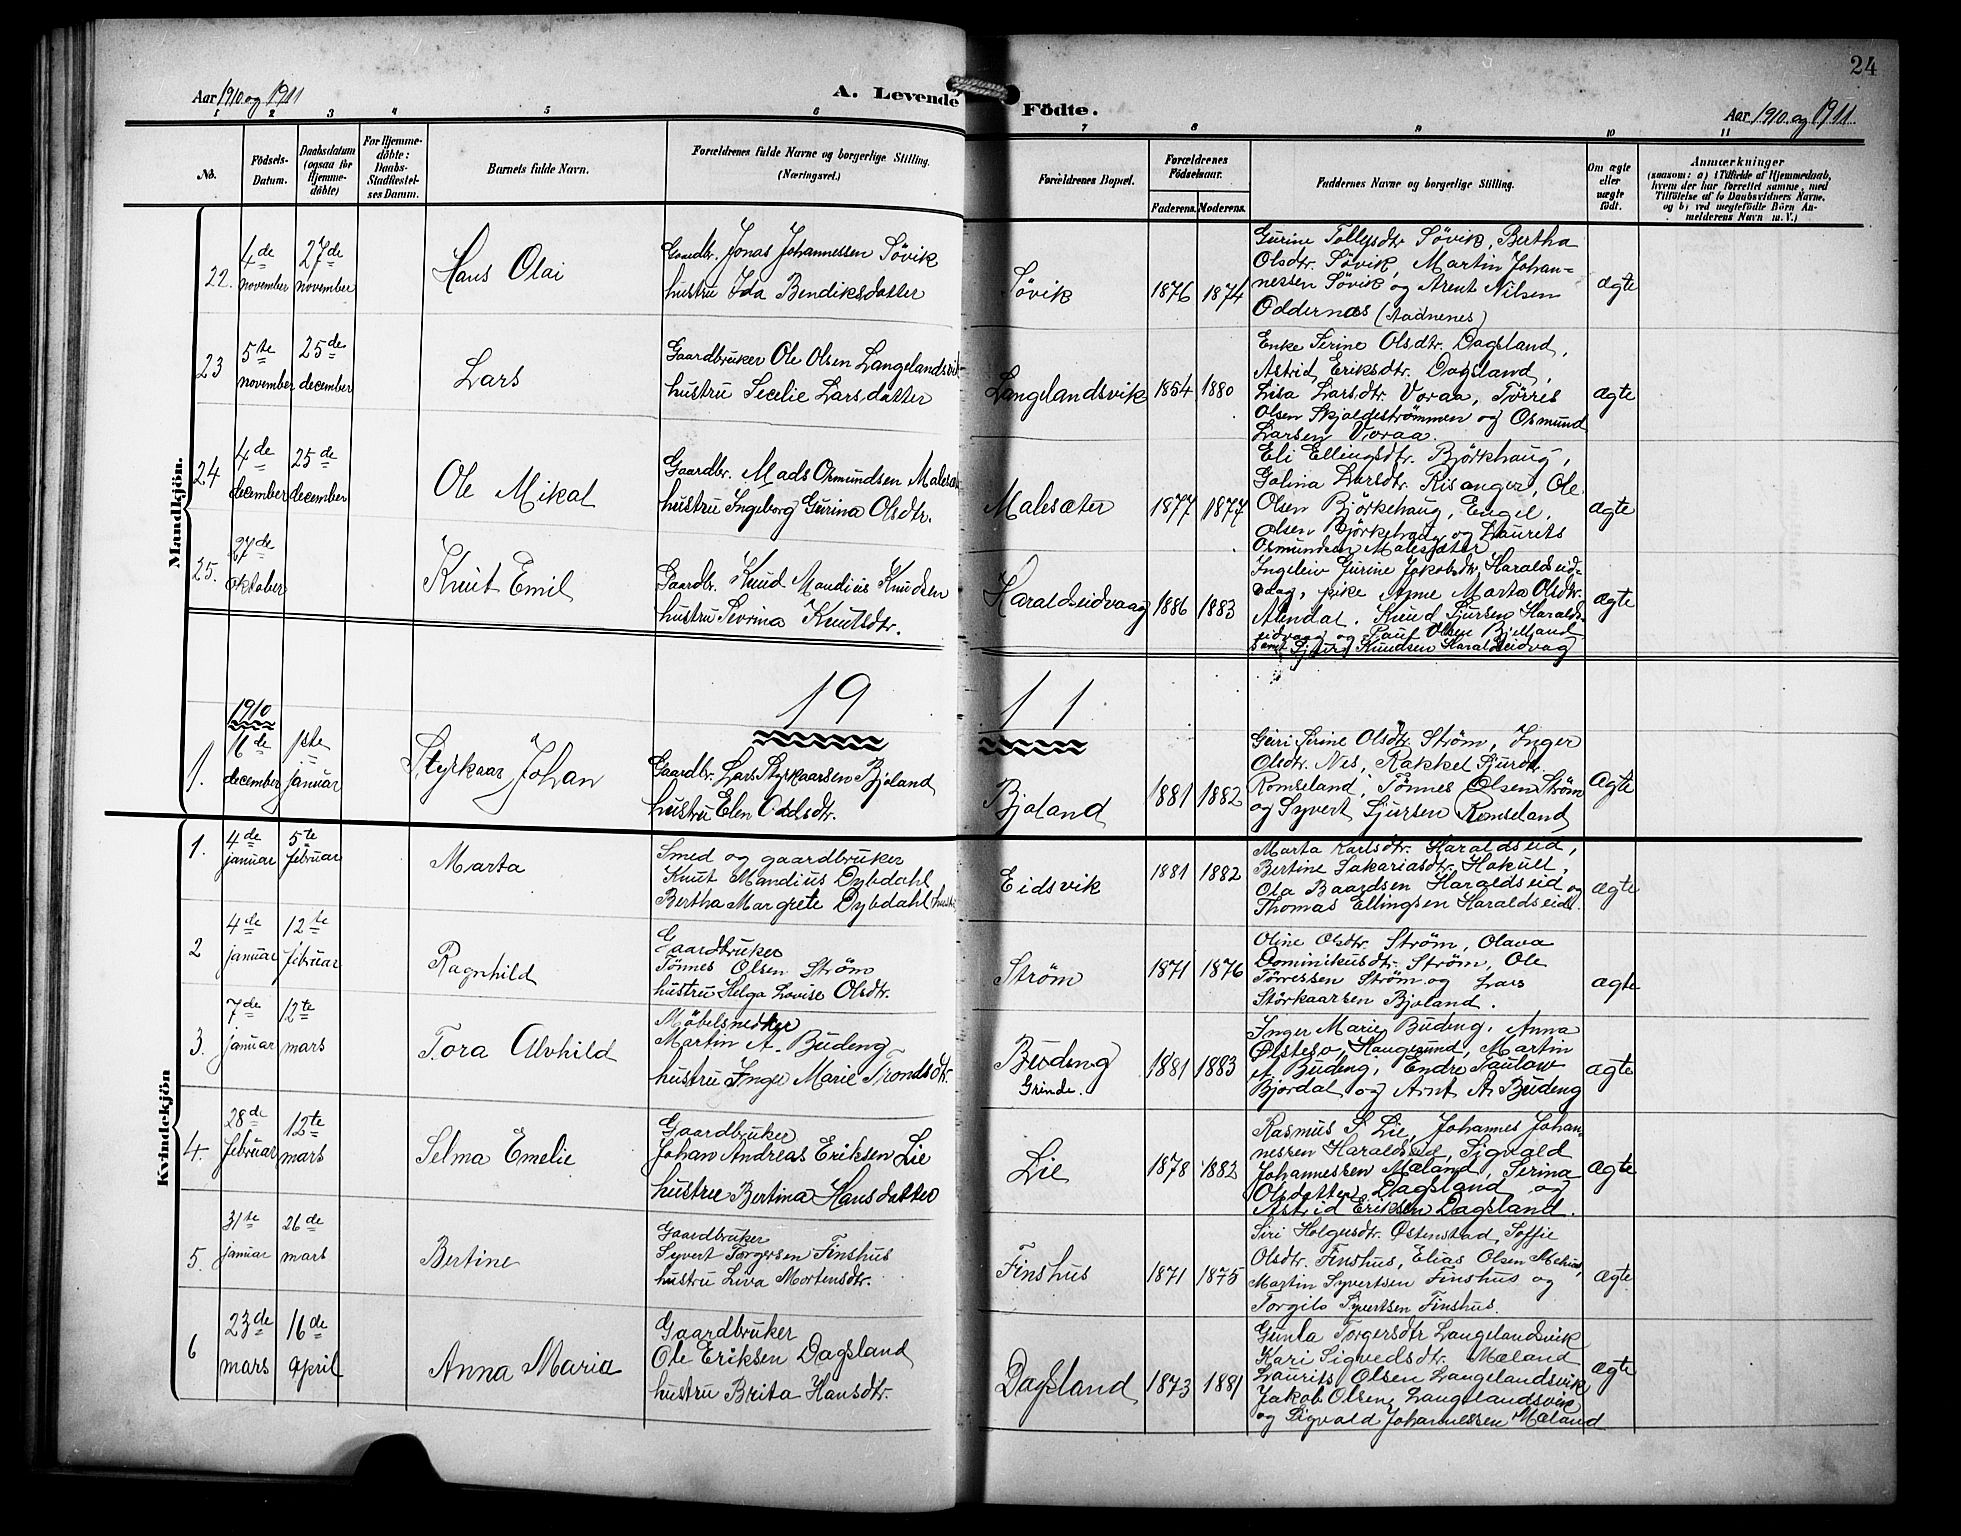 24
Aar 1910 og 1911
A. Levende Födte.
Aar 1910 og 1911.
1 2 3 4 5 6 7 8 9 10 11
No.
Födsels-Datum.
Daabsdatum (ogsaa for Hjemme-döbte)
For Hjemme-döbte: Daabs-Stadfæstel-ses Datum.
Barnets fulde Navn.
Forældrenes fulde Navne og borgerlige Stilling. (Næringsvei.)
Forældrenes Bopæl.
Forældrenes Födselsaar.
Faderens. Moderens.
Faddernes Navne og borgerlige Stilling.
Om ægte eller uægte födt.
Anmærkninger
(saasom: a) i Tilfælde af Hjemmedaab, hvem der har forrettet samme, med Tilföielse af to Daabsvidners Navne, og b) ved uægtefödte Börn An-melderens Navn m. V.)
Mandkjön.
22. 4de november 27de november
Hans Olai
Gaardbr. Jonas Johannessen Søvik
hustru Ida Bendiksdatter
Søvik 1876 1874
Gurine Tollefsdtr Søvik, Bertha
Olsdtr. Søvik, Martin Johan=
nessen Søvik og Arent Nilsen
Oddernæs (Aadnenes)
ægte
23 5te november 25de december
Lars
Gaardbruker Ole Olsen Langelandsvik
hustru Secelie Larsdatter
Langelandsvik 1854 1880
Enke Serine Olsdtr. Dagsland,
Astrid Eriksdtr. Dagsland,
Lisa Larsdtr. Voraa, Tørres
Olsen Skjoldestrømmen og Osmund
Larsen Voraa.
ægte
24 4de december 25de december
Ole Mikal
Gaardbr. Mads Osmundsen Malesæter
hustru Ingeborg Gurina Olsdtr.
Malesæter 1877 1877
Eli Ellingsdtr. Björkhaug,
Golina Larsdtr. Risanger, Ole
Olsen Björkehaug, Engel
Olsen Björkehaug og Laurets
Osmundsen Malesæter
ægte
25. 27de oktober
Knut Emil
Gaardbr. Knud Mandius Knudsen
hustru Severina Knutsdtr.
Haraldseidvaag 1886 1883
Ingeleiv Gurine Jakobsdtr. Haraldseid=
vaag, pike Anne Marta Olsdtr.
Alendal. Knud Sjursen Haralds-
eidvaag og Paul Olsen Bjelland
samt Sjurs Knudsen Haraldseidvag
ægte
1911
1910
1. 16de december 1ste januar
Styrkaar Johan
Gaardbr. Lars Styrkaarsen Bjoland
hustru Elen Oddsdtr.
Bjoland 1881 1882
Guri Serine Olsdtr. Strøm, Inger
Olsdtr. Nes, Rakkel Sjursdtr.
Romseland, Tønnes Olsen Strøm
og Syvert Sjursen Romseland
ægte
Kvindekjön
1. 4de januar 5te februar
Marta
Smed og gaardbruker
Knut Mandius Dybdahl
Bertha Margrete Dybdahl (hustr
Eidsvik 1881 1882
Marta Karlsdtr. Haraldseid,
Bertine Sakariasdtr. Hakull,
Ola Baardsen Haraldseid og
Thomas Ellingsen Haraldseid.
ægte
2 4de januar 12te februar
Ragnhild
Gaardbruker
Tønnes Olsen Strøm
hustru Helga Lovise Olsdtr.
Strøm 1871 1876
Oline Olsdtr. Strøm, Olava
Dominikusdtr. Strøm, Ole
Tørressen Strøm og Lars
Störkaarsen Bjoland.
ægte
3. 7de januar 12te mars
Tora Alvhild
Möbelsnedker
Martin A. Budeng
hustru Inger Marie Trondsdtr.
Budeng
Grinde. 1881 1883
Inger Marie Budeng, Anna
Østesø, Haugesund, Martin
A. Budeng, Endre Paulow
Bjordal og Arnt A. Budeng
ægte
4. 28de februar 12te mars
Selma Emelie
Gaardbruker
Johan Andreas Eriksen Lie
hustru Bertina Hansdatter
Lie 1878 1882
Rasmus S. Lie, Johannes Johan-
nessen Haraldseid, Sigvald
Johannessen Mæland, Serina
Olsdatter Dagsland og
Astrid Eriksen Dagsland.
ægte
5. 31te januar 26de mars
Bertine
Gaardbruker
Syvert Torgersen Finshus
hustru Liva Mortensdtr.
Finshus 1871 1875
Siri Holgersdtr. Østenstad, Soffie
Olsdtr. Finshus, Elias Olsen
Martin Syvertsen Finshus og
Torgils Syvertsen Finshus.
ægte.
6 23de mars 16de april
Anna Maria
Gaardbruker
Ole Eriksen Dagsland
hustru Brita Hansdtr.
Dagsland 1873 1881
Gunla Torgersdtr Langelandsvik
Kari Sigvedsdtr. Mæland
Laurits Olsen Langelandsvik
Jakob Olsen Langelandsvik
og Sigvald Johannessen Mæland
ægte